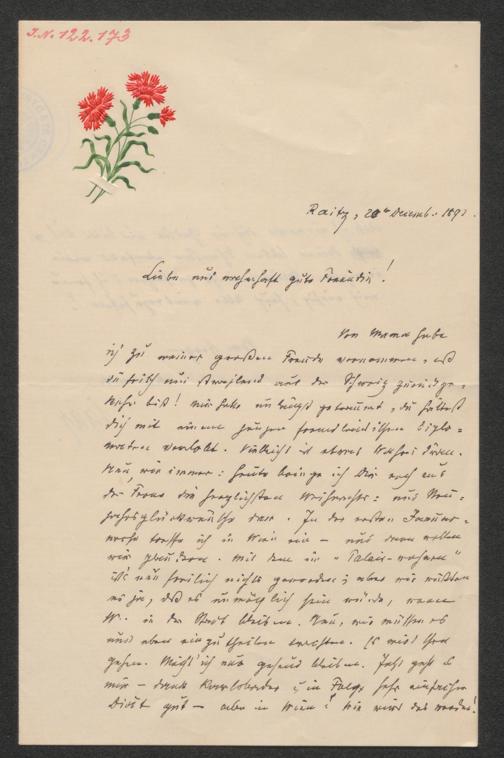 J.N. 122.173
Raitz, 20te Decemb. 189
Liebe und wahrhaft gute Freundin!
Von Mama habe
ich zu meiner großen Freude vernommen, daß
du frisch und aus der Schweiz zurückge-
kehrt bist! Mir hatte geträumt, du hättest
dich mit einem jungen Diplo-
maten verlobt. Vielleicht ist etwas Wahres daran.
Nun, wie immer: heute bringe ich Dir auch aus
der Ferne die herzlichsten Weihnachts- und Neu-
jahrsglückwünsche dar. In der ersten Januar-
woche treffe ich in Wien ein – und dann wollen
wir plaudern. Mit dem im "Palais-wohnen"
ist's nun freilich nichts geworden; aber wir wußten
es ja, daß es unmöglich sein würde, wenn
W. in der Stadt bleiben. Nun, wir müssen es
uns eben einzutheilen trachten. Es wird schon
gehen. Möcht' ich nur gesund bleiben. Jetzt geht es
mir – dank Karlsbader und in Folge sehr einfacher
Diät gut – aber in Wien! Wie wird das werden!